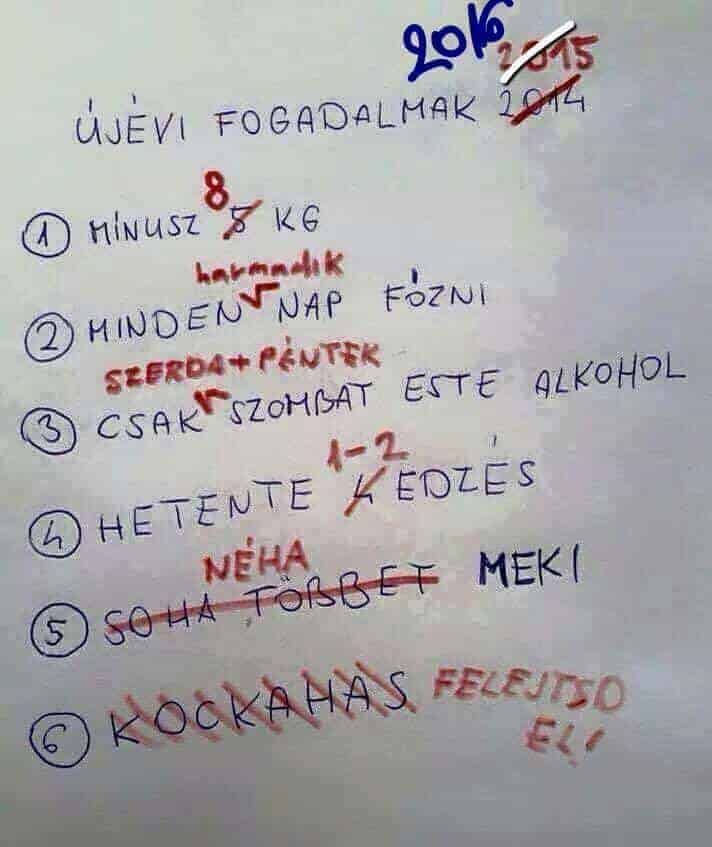 2016 2015
ÚJÉVI FOGADALMAK 2014
8
1 MÍNUSZ 5 KG
harmadik
2 MINDEN NAP FŐZNI
SZERDA+PÉNTEK
3 CSAK SZOMBAT ESTE ALKOHOL
1-2
4 HETENTE 4 EDZÉS
NÉHA
5 SOHA TÖBBET MEKI
6 KOCKAHAS FELEJTSD
EL!